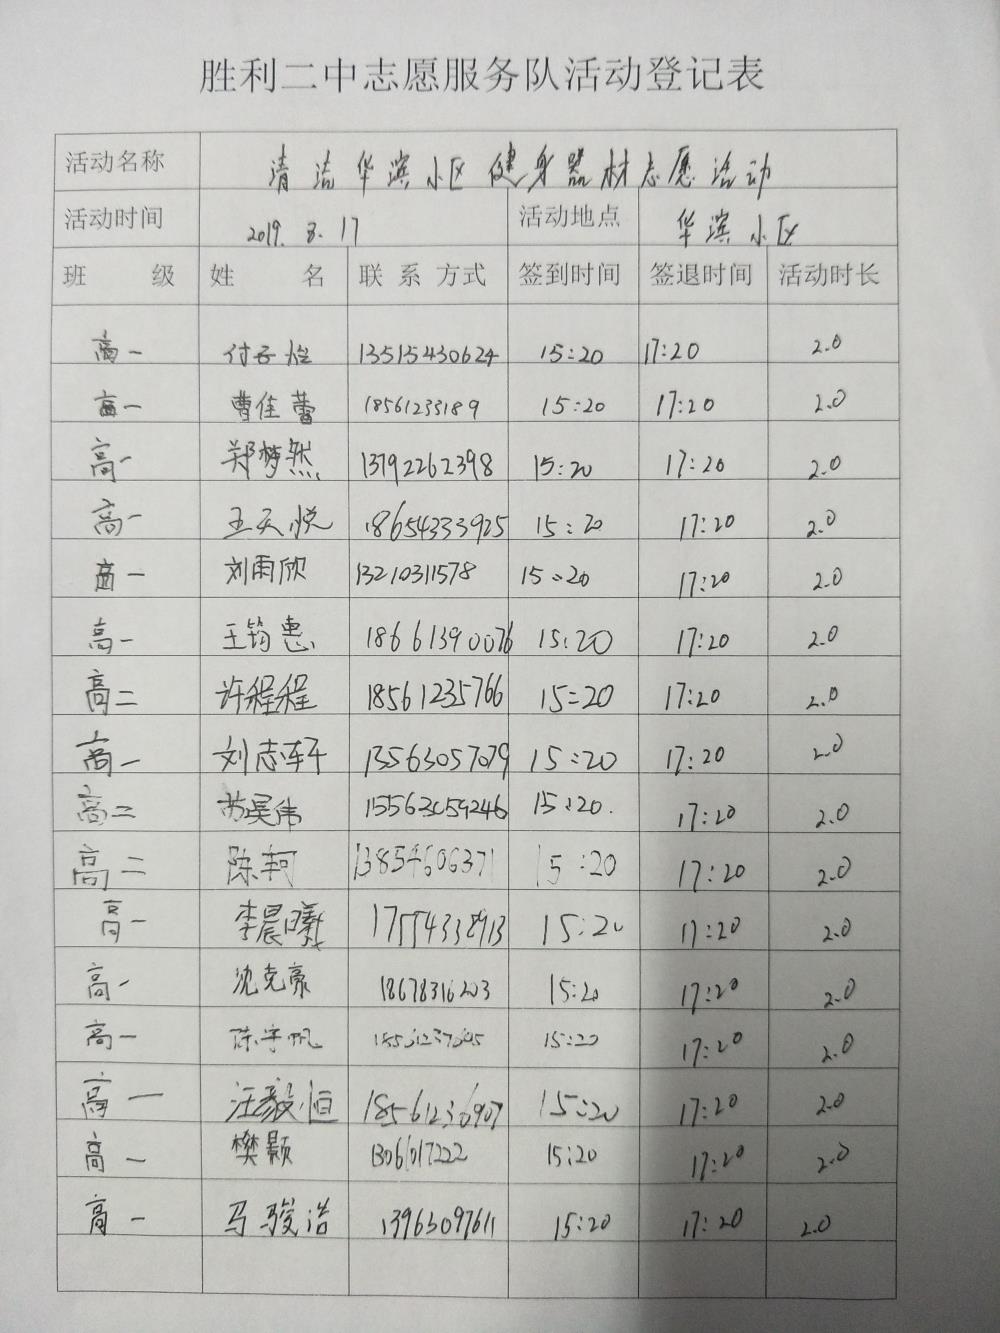 胜利二中志愿服务队活动登记表
活动名称 清洁华滨小区健身器材志愿活动
活动时间 2019.3.17 活动地点 华滨小区
班 级 姓 名 联 系 方式 签到时间 签退时间 活动时长
高一 付子怡 13515430624 15:20 17:20 2.0
高一 曹佳蕾 18561233189 15:20 17:20 2.0
高一 郑梦然 13792262398 15:20 17:20 2.0
高一 王天悦 18654333925 15:20 17:20 2.0
高一 刘雨欣 13210311578 15:20 17:20 2.0
高一 王筠惠 18661390076 15:20 17:20 2.0
高二 许程程 18561235766 15:20 17:20 2.0
高一 刘志轩 13563057079 15:20 17:20 2.0
高二 苏昊伟 15563059246 15:20. 17:20 2.0
高二 陈轲 13854606371 15:20 17:20 2.0
高一 李晨曦 17554338913 15:20 17:20 2.0
高一 沈克豪 18678316203 15:20 17:20 2.0
高一 陈宇帆 15:20 17:20 2.0
高一 汪毅恒 18561236907 15:20 17:20 2.0
高一 樊颢 15:20 17:20 2.0
高一 马骏浩 13963097611 15:20 17:20 2.0